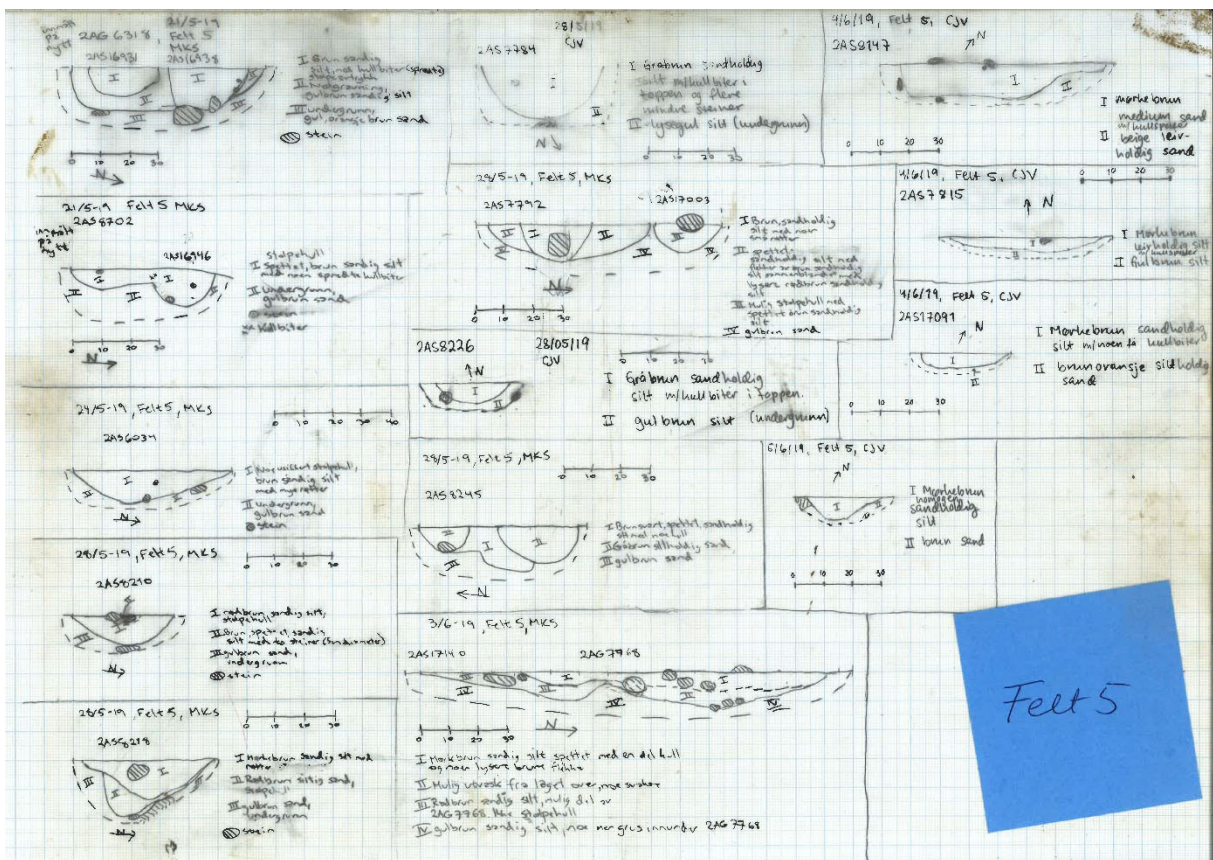 21/5-19
2AG 6318, Felt 5
MKS
2AS16931 2AS16938
I Brun sandig
silt, med kullbiter
gulbrun sandig silt
III undergrunn,
gul, oransje brun sand
stein
I I
II
III
0 10 20 30
N
21/5-19 Felt 5 MKS
2AS8702
2AS16946
stolpehull
I Spettet, brun sandig silt
med noen spredte kullbiter
II undergrunn,
gulbrun sand
stein
kullbiter
I I
II II
0 10 20 30
N
24/5-19, Felt 5, MKS
0 10 20 30 40
2AS6034
stolpehull,
brun sandig silt
med mye røtter
II undergrunn,
gulbrun sand
stein
I
II II
N
28/5-19, Felt 5, MKS
0 10 20 30
2AS8210
I rødbrun sandig silt,
stolpehull
II Brun, spettet, sandig
silt med to steiner
III gulbrun sand,
undergrunn
stein
N
28/5-19, Felt 5, MKS
0 10 20 30
2AS8218
I Mørkebrun sandig silt med
røtter
II Rødbrun siltig sand,
stolpehull
III gulbrun sand,
undergrunn
stein
I
III
28/5/19
CJV
2AS7784
I Gråbrun
silt m/kullbiter i
toppen og flere
mindre steiner
II lysegul silt (undergrunn)
I
II
N
0 10 20 30
29/5-19, Felt 5, MKS
2AS7792 2AS17003
I Brun, sandholdig
silt med noen
små røtter
II spettet,
sandholdig silt med
flekker av brun sandholdig
silt
lysere rødbrun sandholdig
silt
III Mulig stolpehull med
spettet brun sandholdig
silt
IV gulbrun sand
0 10 20 30
N
2AS8226 28/05/19
CJV
0 10 20 30
N
I Gråbrun sandholdig
silt m/kullbiter i toppen.
II gulbrun silt (undergrunn)
I
II
28/5-19, Felt 5, MKS
0 10 20 30
2AS8245
I Brunsvart, spettet, sandholdig
silt med noe kull
II Gråbrun siltholdig sand
III gulbrun sand
I II
III
N
3/6-19, Felt 5, MKS
2AS17140 2AG7968
I
II
IV IV IV
0 10 20 30
N
I Mørk brun sandig silt spettet med en del kull
og noen lysere brune flekker
II Mulig utvask fra laget over, mye
III Rødbrun sandig silt, mulig del av
2AG7968. Ikke stolpehull
IV gulbrun sandig silt, noe mer grus innunder 2AG7968
4/6/19, Felt 5, CJV
2AS8147
N
I
II
I mørkebrun
medium sand
II beige leir-
holdig sand
0 10 20 30
4/6/19, Felt 5, CJV
0 10 20 30
2AS7815
N
I Mørkebrun
leirholdig silt
Gulbrun silt
4/6/19, Felt 5, CJV
2AS17091
N
I Mørkebrun sandholdig
silt m/noen få kullbiter
II brunoransje siltholdig
sand
I
II
0 10 20 30
6/6/19, Felt 5, CJV
N
I Mørkebrun
homogen
sandholdig
silt
II brun sand
I
II
0 10 20 30
Felt 5